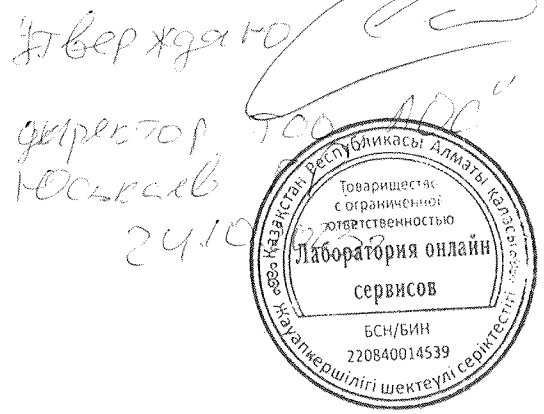 Утверждаю
директор ТОО "ЛОС"
Юськаев
Қазақстан Республикасы Алматы қаласы
Товарищество
с ограниченной
ответственностью
Лаборатория онлайн
сервисов
БСН/БИН
220840014539
Жауапкершілігі шектеулі серіктестігі